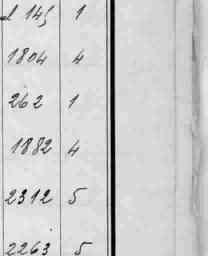 145 1
1804 4
262 1
1882 4
2312 5
2263 5